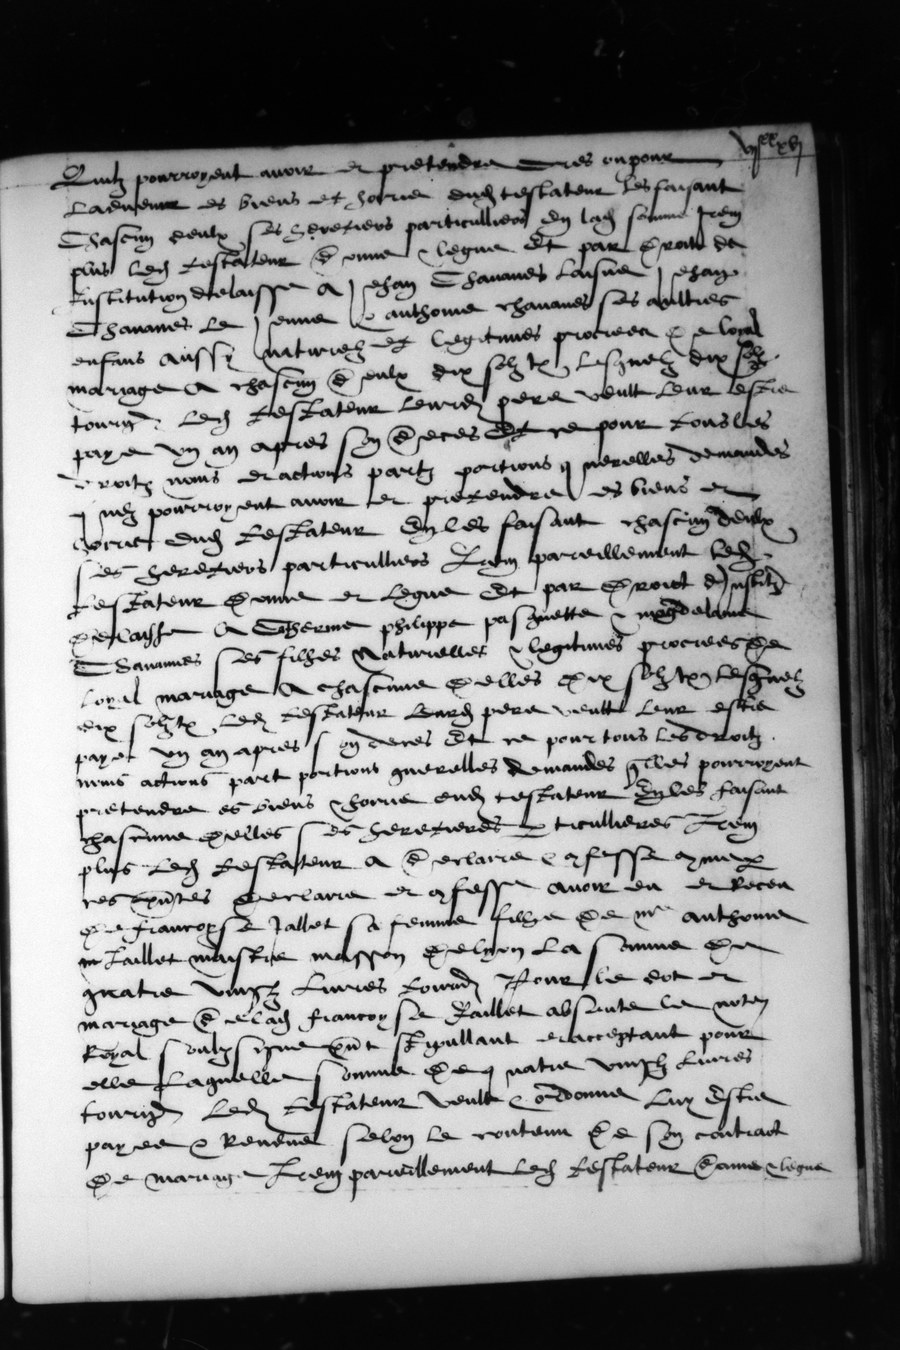 Quilz pourroyent avoir et pretendre ores ou pour
Ladvenir es biens et hoirie dudt testateur les faisant
Chascun deulx ses heretiers particulliers en ladt somme Item
plus ledt testateur donne & legue Et par droit de
Institution delaisse A Jehan Chavanes laisne Jehan
Chavanes le Jeune & anthoine chavanes ses aultres
enfans aussy naturielz et legitimes procreea de loyal
mariage A chascun deulx dix solz tz Lesquelz dix solz
tourn. ledt testateur leurdt pere veult leur estre
paye ung an apres son deces Et ce pour tous les
droitz noms et actions partz portions querelles demandes
quilz pourroyent avoir et pretendre es biens et
hoirie dudt testateur En les faisant chascun deulx
ses heretiers particulliers Item pareillement ledt
testateur donne et legue Et par droict dInstitn
delaisse A Therme philippe pasquette & magdelaine
Chavannes ses filhes naturielles & legitimes procrees de
loyal mariage A chascune delles dix solz tz Lesquelz
dix solz tz ledt testateur leurdt pere veult leur estre
paye ung an apres son deces Et ce pour tous les droitz
noms actions part portions querelles demandes qlles pourroyent
pretendre es biens & hoirie dudt testateur En les faisant
chascune delles ses heretieres pticullieres Item
plus ledt testateur a declaire & cfesse comme p
ces pntes declaire et cfesse avoir eu et Receu
de francoyse Jallet sa femme filhe de mre anthoine
Jaillet maistre masson de lyon La somme de
quatre vingtz Livres tourn Pour le dot et
mariage de ladt francoyse Jaillet absente le notere
Royal soubzsigne pnt stipullant et acceptant pour
elle Laquelle somme de quatre vingtz Livres
tourn ledt testateur veult & ordonne luy Estre
payee & Rendue selon le contenu de son contract
de mariage Item pareillement ledt testateur donne & legue